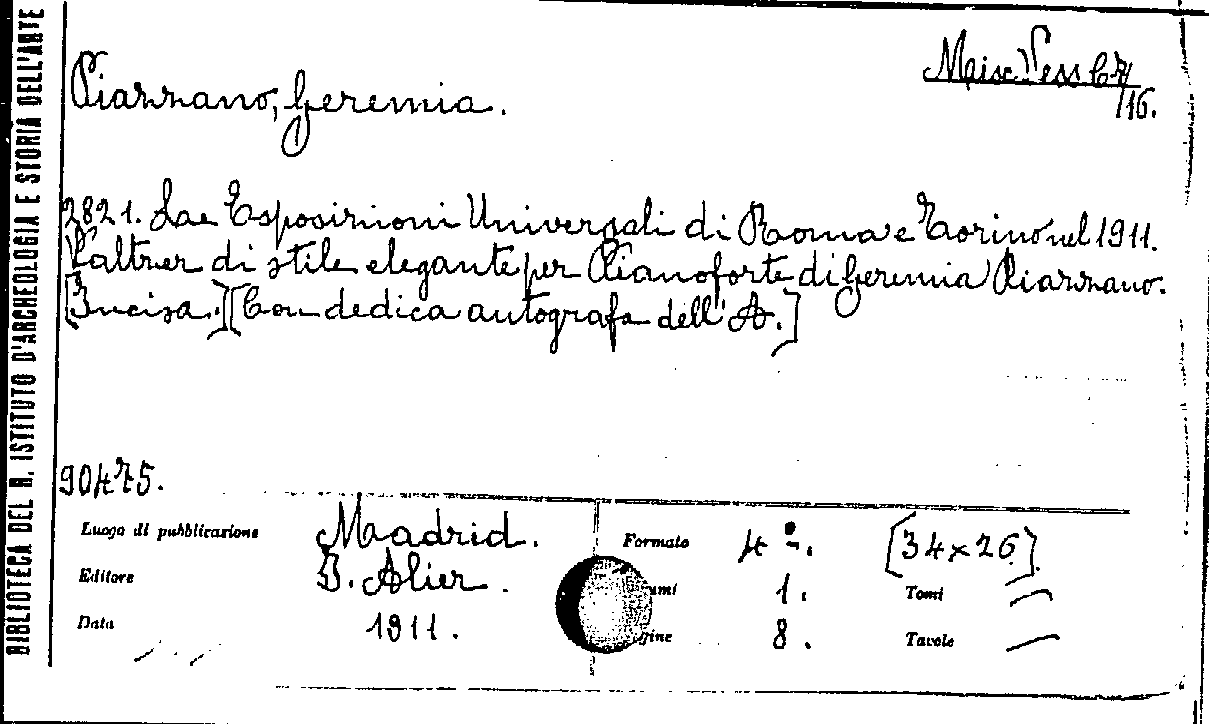 BIBLIOTECA DEL R. ISTITUTO D'ARCHEOLOGIA E STORIA DELL'ARTE
Misc Vess C7/16.
Piazzano, Geremia.
2821. Le Esposizioni Universali di Roma e Torino nel 1911.
Valtzer di stile elegante per Pianoforte di Geremia Piazzano.
[Incisa.] [Con dedica autografa dell'A.]
90475.
Luogo di pubblicazione Madrid. Formato 4º. [34x26]
Editore B. Alier. umi 1. Tomi —
Data 1911. gine 8. Tavole —